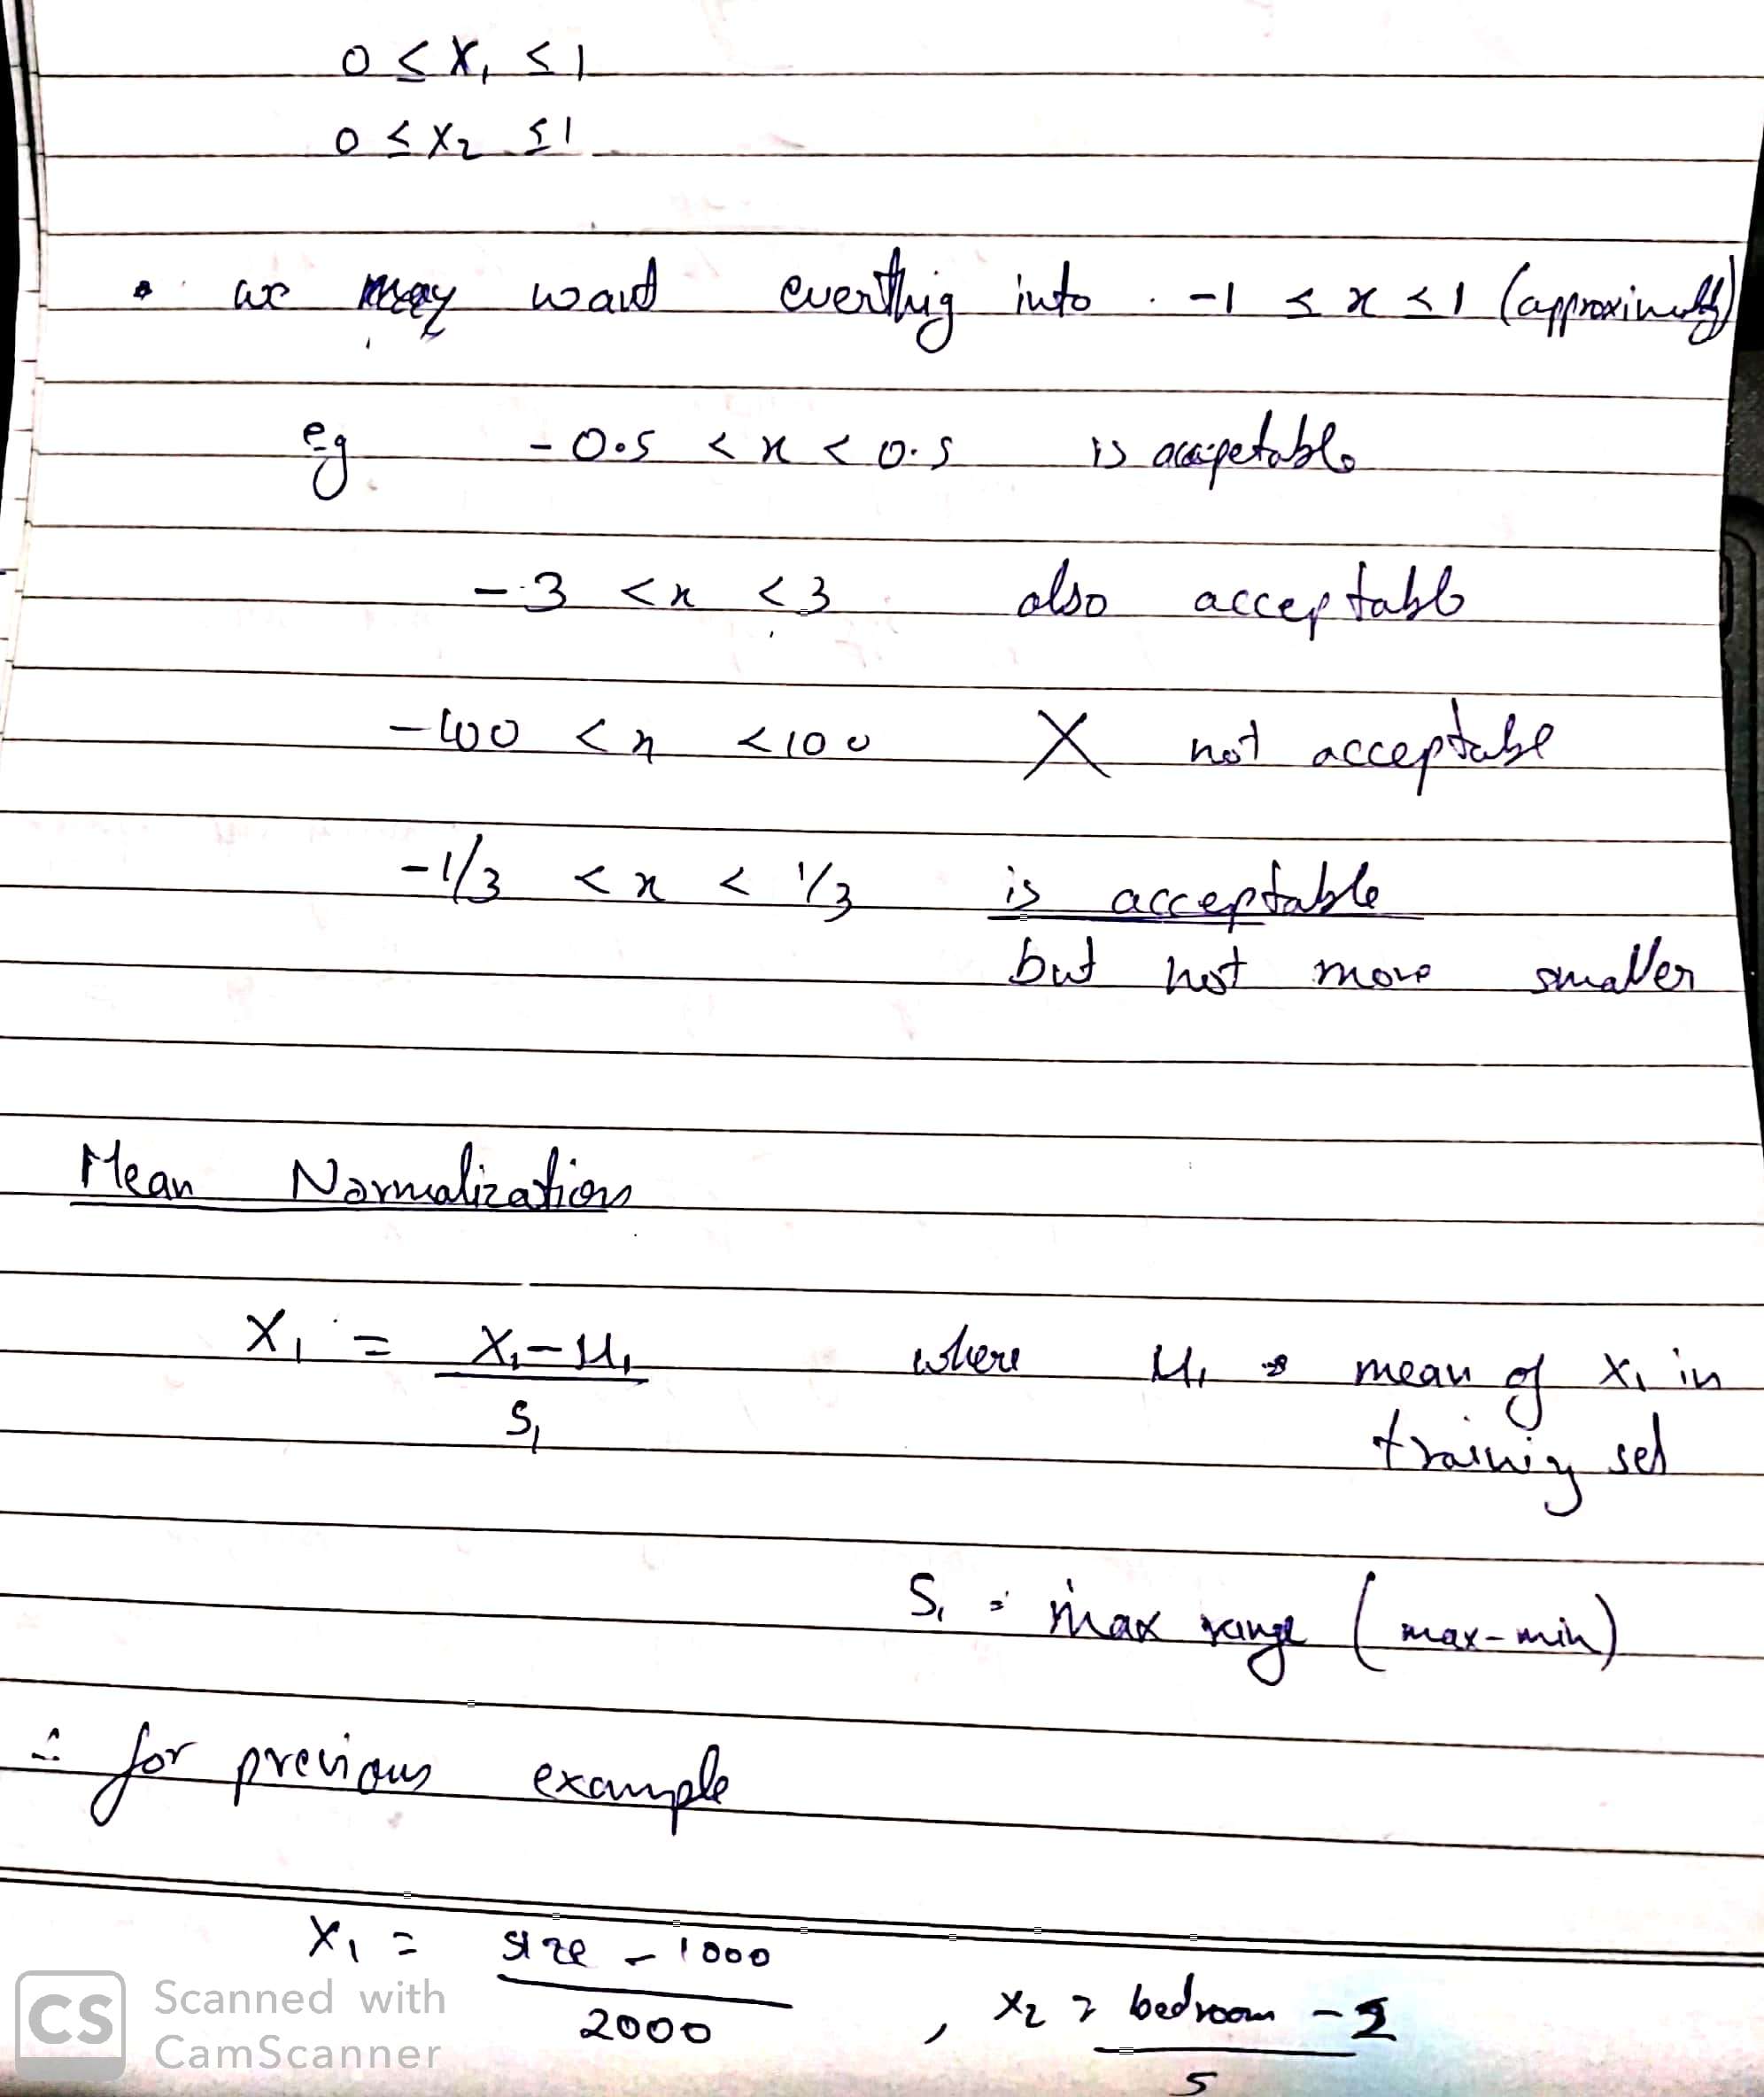 0 ≤ X₁ ≤ 1
0 ≤ X₂ ≤ 1
• we may want everthig into -1 ≤ x ≤ 1 (approximatly)
eg -0.5 < x < 0.5 is accepetable
-3 < x < 3 also acceptable
-100 < x < 100 X not acceptabe
-1/3 < x < 1/3 is acceptable
but not more smaller
Mean Normalization
X₁ = (X₁ - μ₁) / S₁ where μ₁ → mean of X₁ in
training set
S₁ = max range (max-min)
∴ for previous example
X₁ = (size - 1000) / 2000 , X₂ = (bedroom - 2) / 5
CS Scanned with
CamScanner